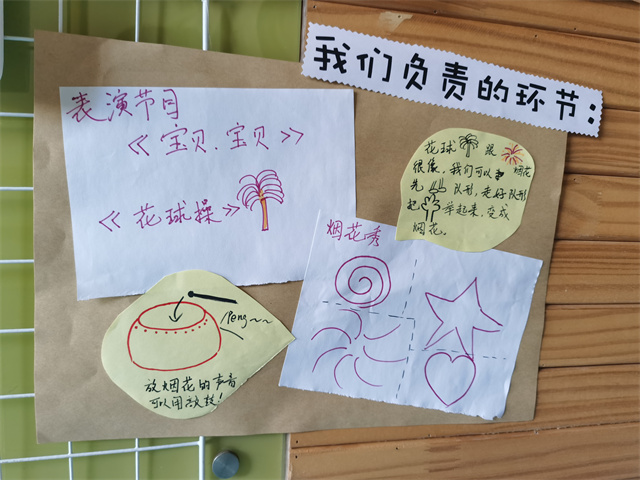 我们负责的环节:
表演节目
《宝贝.宝贝》
《花球操》
花球 跟 烟花
很像,我们可以
先 队形,走好队形
把 举起来,变成
烟花。
烟花秀
Peng~~
放烟花的声音
可以用 鼓!